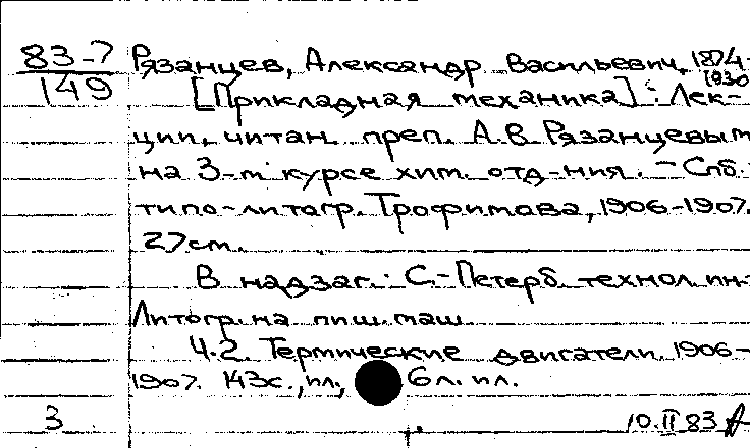 83-7 Рязанцев, Александр Васильевич, 1874-
149 1930
[Прикладная механика]: Лек-
ции, читан. преп. А.В Рязанцевым
на 3-м курсе хим. отд-ния. - Спб.
типо-литогр. Трофимова, 1906-1907.
27см.
В надзаг.: С.-Петерб. технол. ин-
Литогр. на пиш. маш.
Ч.2. Термические двигатели. 1906-
1907. 143с., ил., 6 л. ил.
3 10.II 83